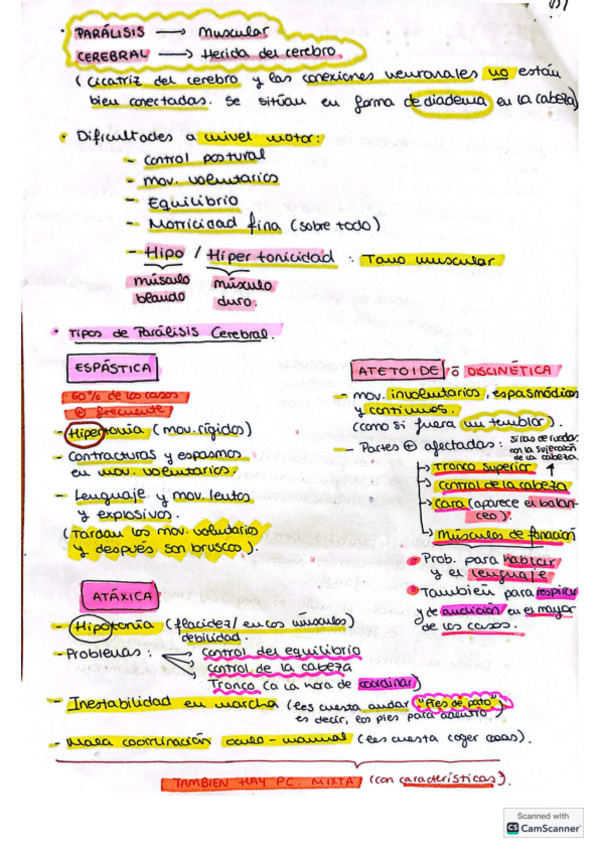 · PARÁLISIS → Muscular
CEREBRAL → Herida del cerebro.
(Cicatriz del cerebro y las conexiones neuronales no están
bien conectadas. Se sitúan en forma de diadema en la cabeza)
· Dificultades a nivel motor:
- control postural
- mov. voluntarios
- Equilibrio
- Motricidad fina (sobre todo)
- Hipo / Hipertonicidad : Tono muscular
músculo blando
músculo duro.
· Tipos de Parálisis Cerebral.
ESPÁSTICA
· 60% de los casos
⊕ frecuente
- Hipertonía (mov. rígidos)
- Contracturas y espasmos
en mov. voluntarios.
- Lenguaje y mov. lentos
y explosivos.
(Tardan los mov. voluntarios
y después son bruscos).
ATETOIDE ō DISCINÉTICA
- mov. involuntarios, espasmódicos
y continuos.
(como si fuera un temblor).
- Partes ⊕ afectadas:
sillas de ruedas
con la sujeción
de la cabeza.
→ Tronco superior ↑
→ Control de la cabeza
→ cara (aparece el balan-
ceo).
→ Músculos de fonación
· Prob. para hablar
y el lenguaje
· También para respirar
y de audición en el mayor
de los casos.
ATÁXICA
- Hipotonía (flacidez/ en los músculos)
debilidad.
- Problemas: control del equilibrio
control de la cabeza
Tronco (a la hora de coordinar)
- Inestabilidad en marcha (les cuesta andar "Pies de pato",
es decir, los pies para adentro).
- Mala coordinación oculo-manual (les cuesta coger cosas).
TAMBIEN HAY P.C. MIXTA (con características).
Scanned with
CS CamScanner